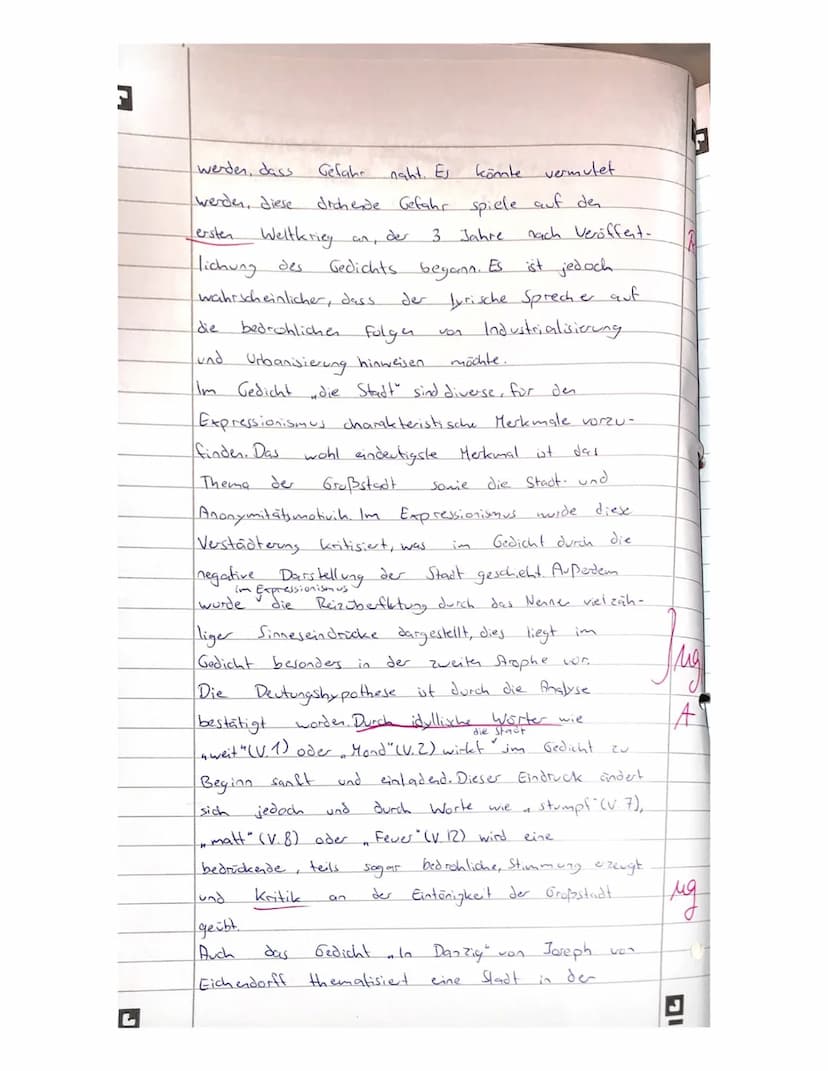 werden, dass Gefahr naht. Es könnte vermutet
werden, diese drohende Gefahr spiele auf den
ersten Weltkrieg an, der 3 Jahre nach Veröffent-
R
lichung des Gedichts begann. Es ist jedoch
wahrscheinlicher, dass der lyrische Sprecher auf
die bedrohlichen Folgen von Industrialisierung
und Urbanisierung hinweisen möchte.
Im Gedicht „die Stadt" sind diverse, für den
Expressionismus charakteristische Merkmale vorzu-
finden. Das wohl eindeutigste Merkmal ist das
Thema der Großstadt sowie die Stadt- und
Anonymitätsmotivik. Im Expressionismus wurde diese
Verstädterung kritisiert, was im Gedicht durch die
negative Darstellung der Stadt geschieht. Außerdem
im Expressionismus
wurde die Reizüberflutung durch das Nennen vielzäh-
liger Sinneseindrücke dargestellt, dies liegt im
Gedicht besonders in der zweiten Strophe vor.
ug
Die Deutungshypothese ist durch die Analyse
bestätigt worden. Durch idyllische Wörter wie
A
die Stadt
„weit" (V. 1) oder „Mond" (V. 2) wirkt im Gedicht zu
Beginn sanft und einladend. Dieser Eindruck ändert
sich jedoch und durch Worte wie „stumpf" (V. 7),
„matt" (V. 8) oder „Feuer" (V. 12) wird eine
bedrückende, teils sogar bedrohliche, Stimmung erzeugt
und Kritik an der Eintönigkeit der Großstadt
ug
geübt.
Auch das Gedicht „In Danzig" von Joseph von
Eichendorff thematisiert eine Stadt in der